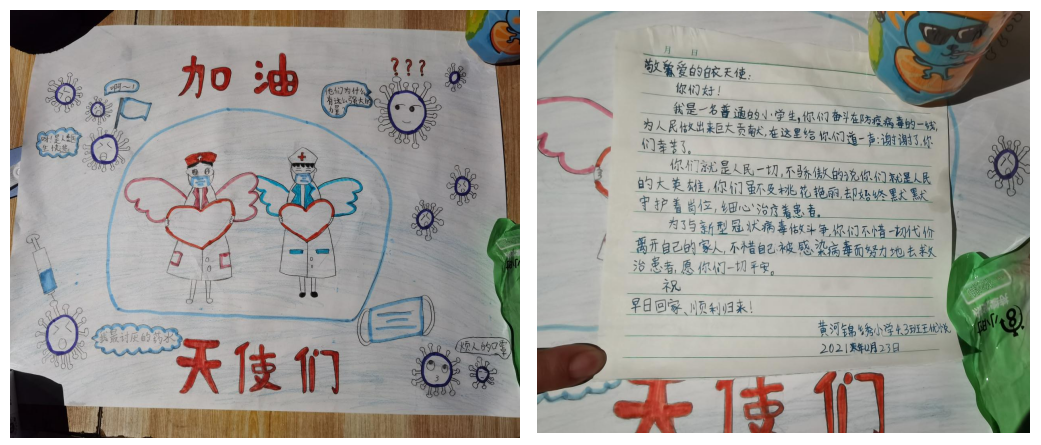 加油
???
啊~!
他们为什么
有这么强大的
天使们
烦人的口罩
月 日
敬爱的白衣天使:
你们好!
我是一名普通的小学生。你们奋斗在防疫病毒的一线,
为人民做出来巨大贡献,在这里给你们道一声:谢谢了,你
们辛苦了。
你们就是人民一切,不骄傲的说你们就是人民
的大英雄,你们虽不及桃花艳丽,却始终默默
守护着岗位,细心治疗着患者。
为了与新型冠状病毒做斗争,你们不惜一切代价
离开自己的家人,不惜自己被感染病毒而努力地去求
治患者,愿你们一切平安。
祝
早日回家、顺利归来!
小学
班王
2021年
23日
天使们